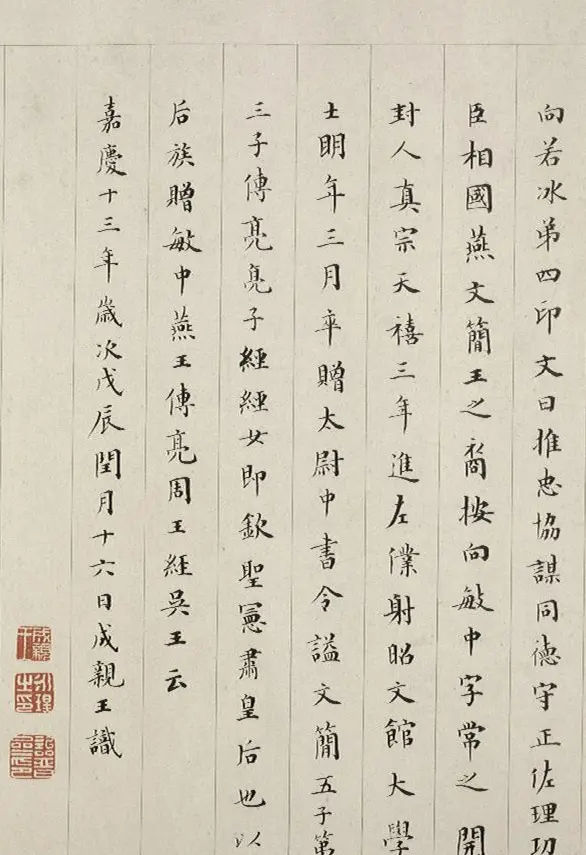 向若冰弟四印文曰推忠協謀同德守正佐理功
臣相國燕文簡王之裔按向敏中字常之開
封人真宗天禧三年進左僕射昭文館大學
士明年三月卒贈太尉中書令謚文簡五子第
三子傳亮亮子經經女即欽聖憲肅皇后也以
后族贈敏中燕王傳亮周王經吳王云
嘉慶十三年歲次戊辰閏月十六日成親王識
永瑆之印
詒晉齋印